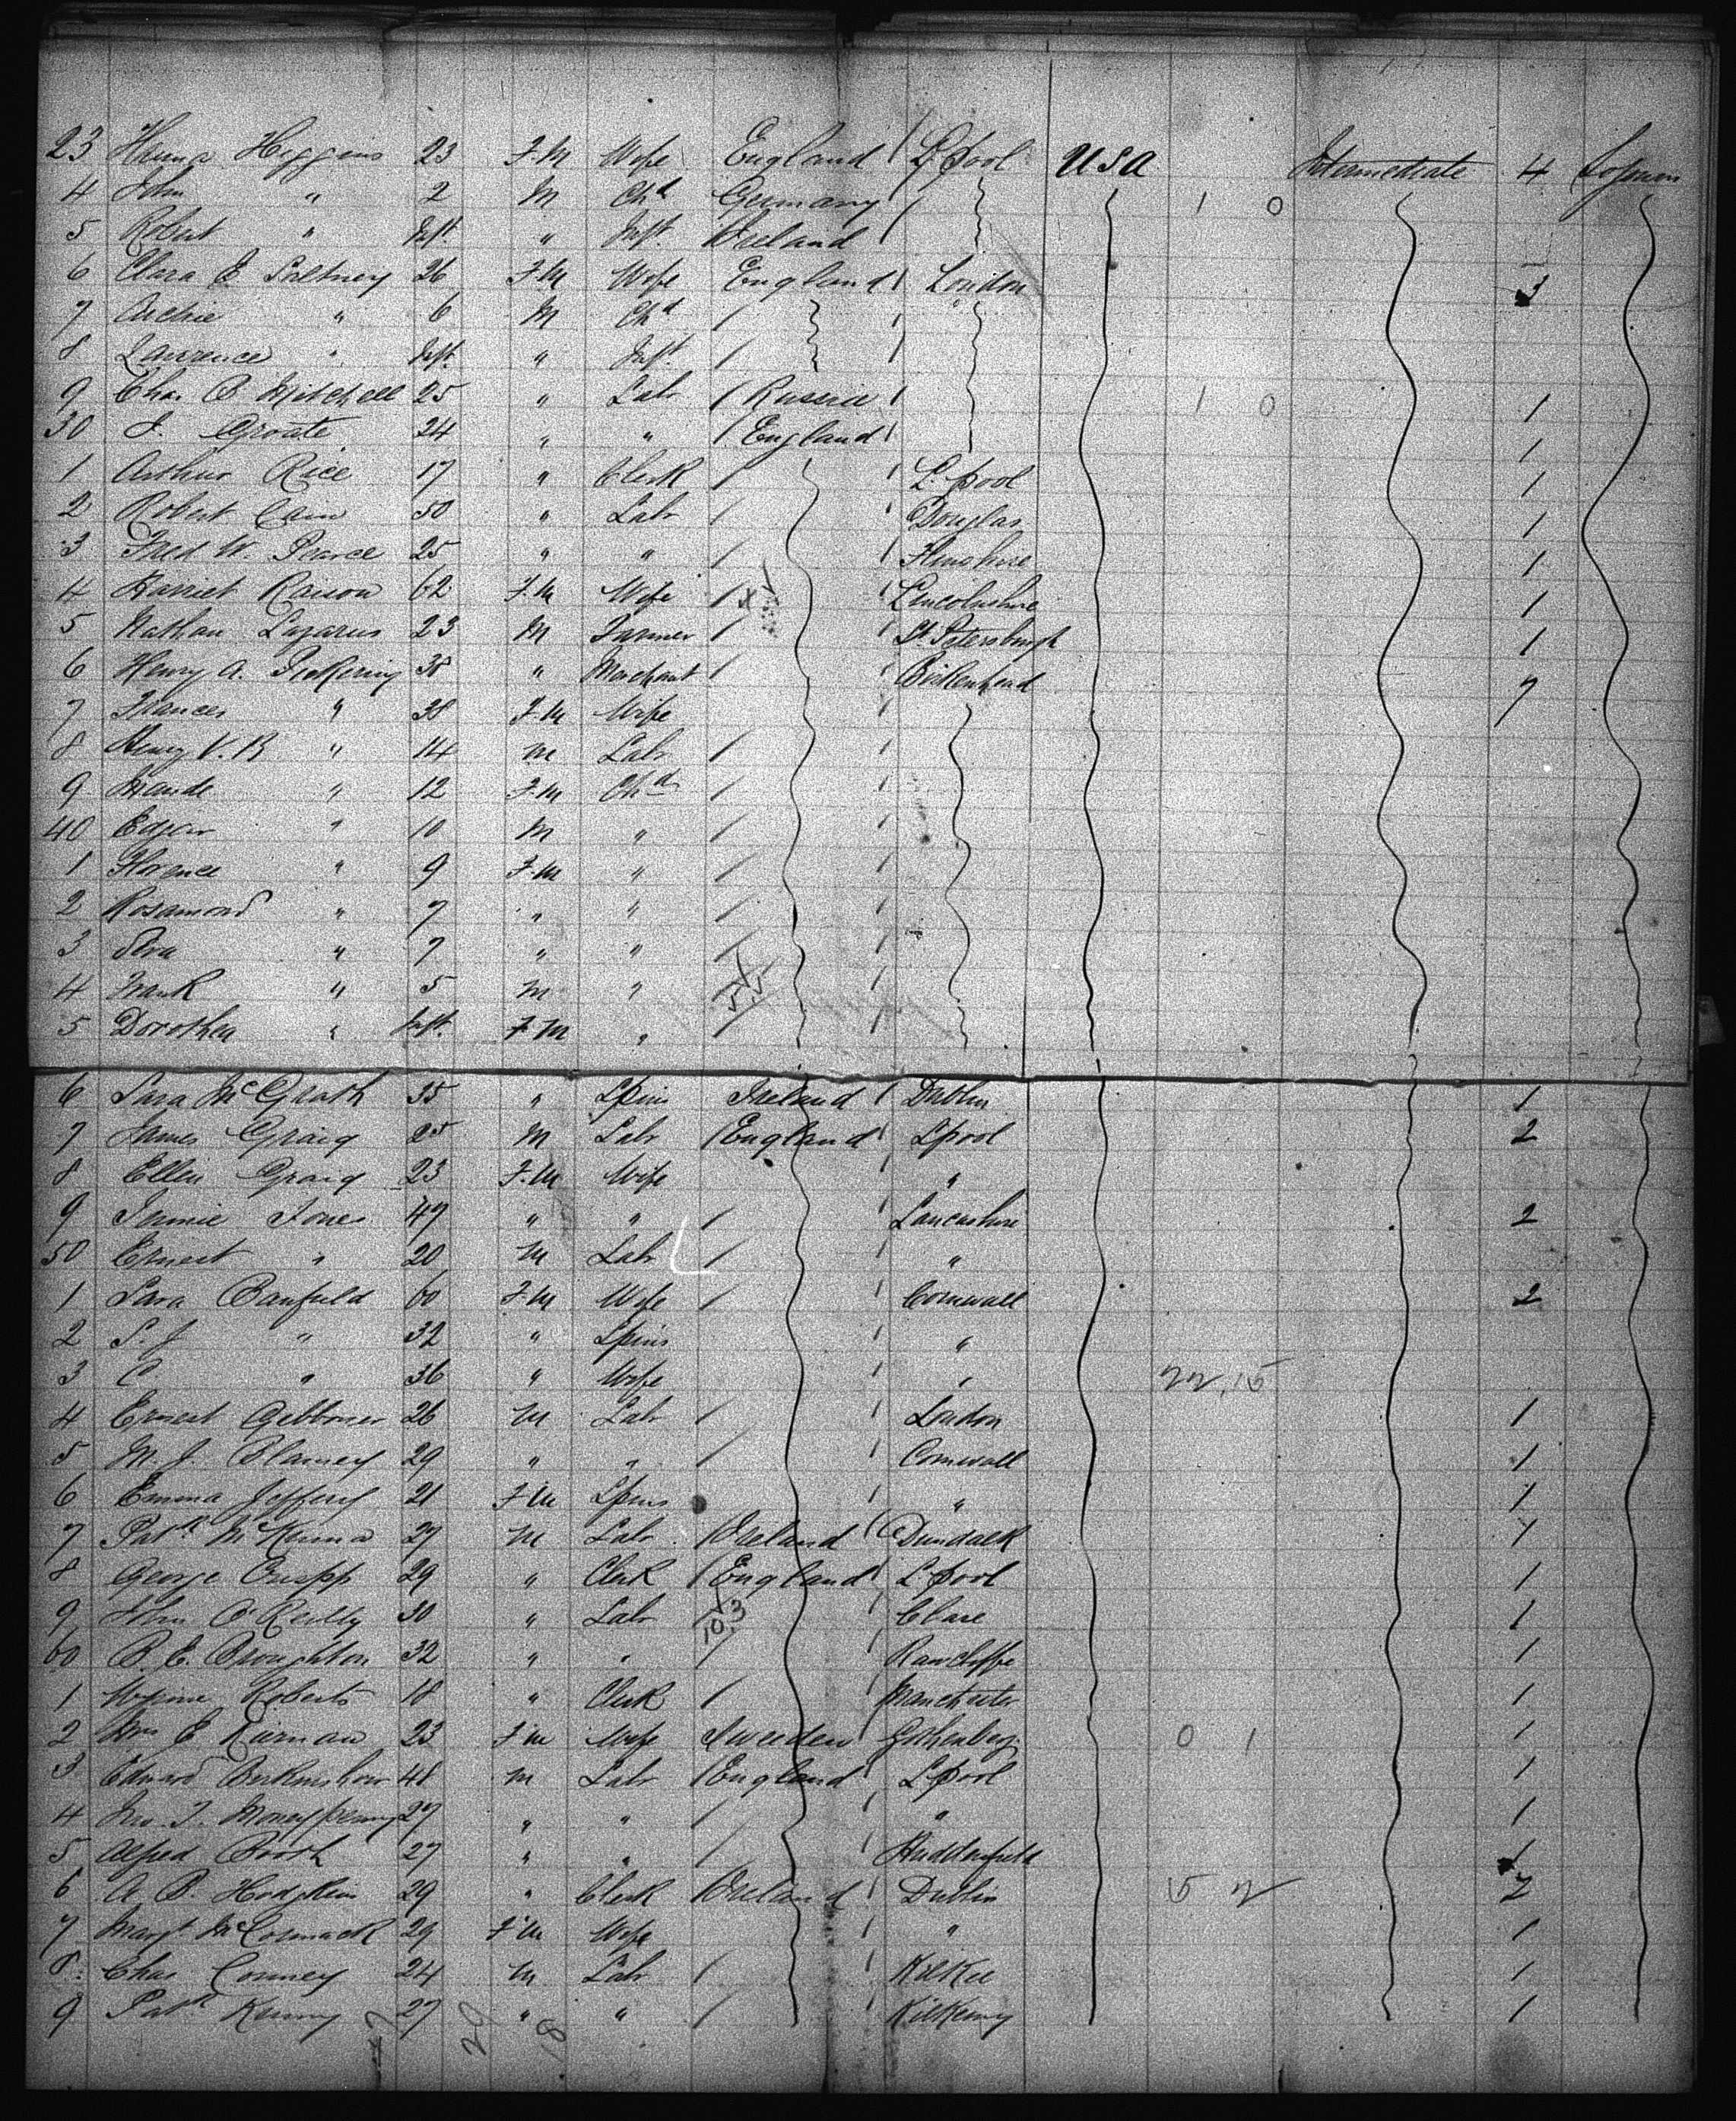 23 Higgins 23 F.M Wife England L'pool USA Intermediate 4
4 John " 2 M Chd Germany 1 0
5 Robert " Inft. " Inft. Ireland
6 Clara E 26 F.M Wife England London 3
7 Archie " 6 M Chd
8 Lawrence " Inft. " Inft.
9 Chas. B Mitchell 25 " Lab Russia 1 0 1
30 J. Groate 24 " " England 1
1 Arthur Rice 17 " Clerk L'pool 1
2 Robert Cain 50 " Lab Douglas 1
3 Fred W. Pearce 25 " " 1
4 Harriet Raison 62 F.M Wife Lincolnshire 1
5 Nathan Lazarus 23 M Farmer St. Petersburgh 1
6 Henry A. Pickering 38 " Merchant Birkenhead 7
7 Frances " 38 F.M Wife
8 Henry V. B " 14 M Lab
9 Maude " 12 F.M Chd
40 Edgar " 10 M "
1 Florence " 9 F.M "
2 Rosamond " 7 " "
3 " 7 " "
4 Frank " 5 M "
55
5 Dorothea " Inft. F.M "
6 Sara McGrath 35 " Spins Ireland Dublin 1
7 James Graig 25 M Lab England L'pool 2
8 Ellen Graig 23 F.M Wife "
9 Jennie Jones 47 " " Lancashire 2
50 Ernest " 20 M Lab "
1 Sara Banfield 60 F.M Wife Cornwall 2
2 S. J " 32 " Spins "
3 C " 36 " Wife " 22.15
4 Ernest 26 M Lab London 1
5 M. J. Blamey 29 " " Cornwall 1
6 Emma Jeffery 21 F.M Spins " 1
7 Patk McKenna 27 M Lab Ireland Dundalk 1
8 George Cripps 29 " Clerk England L'pool 1
9 John O'Reilly 30 " Lab 103 Clare 1
60 B. E. Broughton 32 " " 1
1 Roberts 18 " Clerk Manchester 1
2 Mrs E Kiernan 23 F.M Wife Sweeden Gothenberg 0 1 1
3 Edward Berkenshaw 48 M Lab England L'pool 1
4 Jno. T. Moneypenny 27 " " " 1
5 Alfred Booth 27 " " Huddersfield 1
6 A. B. Hodgkin 29 " Clerk Ireland Dublin 5 2 2
7 Margt McCormack 29 F.M Wife " 1
8 Chas 24 M Lab Kilkee 1
9 Patk Kenny 27 " " Kilkenny 1
29 18